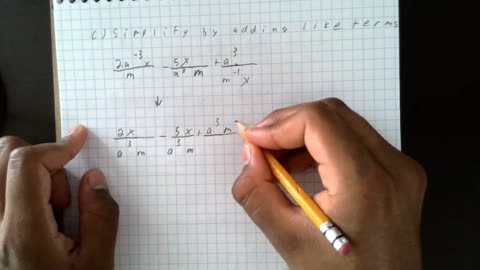 c) Simplify by adding like terms
2a⁻³x/m - 5x/a³m + a³/m⁻¹x
↓
2x/a³m - 5x/a³m + a³m